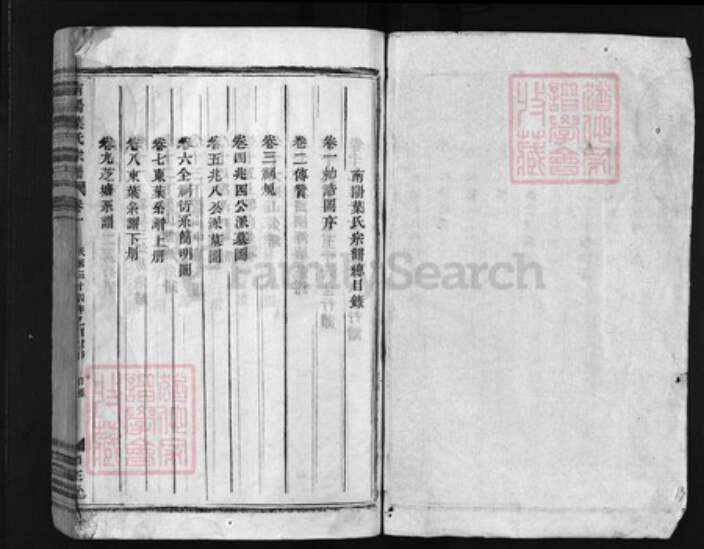 南陽葉氏宗譜總目錄
卷一勅誥圖序
卷二傳贊
卷三祠規
卷四兆四公派墓圖
卷五兆八公派墓圖
卷六全祠衍系簡明圖
卷七東葉系譜上冊
卷八東葉系譜下冊
卷九芝塘系譜
南陽葉氏宗譜
FamilySearch
譜學會
收藏
譜學會
收藏